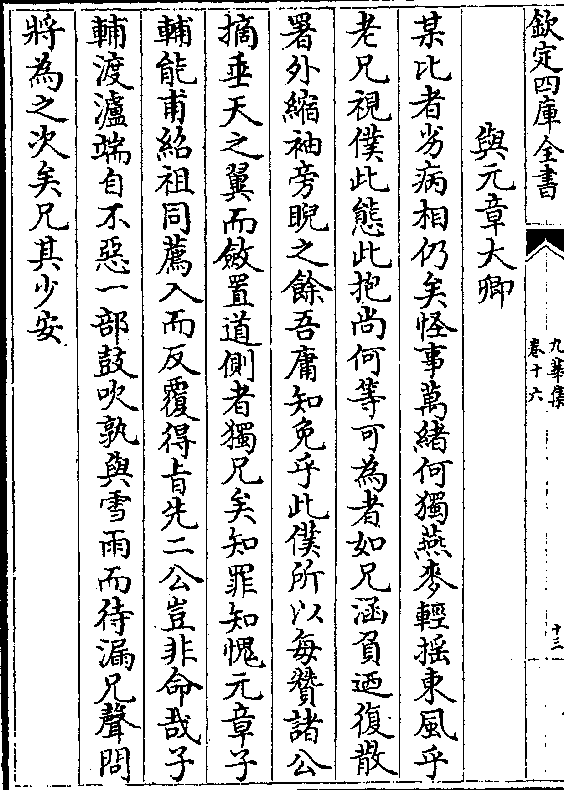 欽定四庫全書
九華集
卷十六
十三
與元章大卿
某比者劣病相仍矣怪事萬緒何獨燕麥輕揺東風乎
老兄視僕此態此抱尚何等可為者如兄涵負迺復散
署外縮袖旁睨之餘吾庸知免乎此僕所以每贊諸公
摘垂天之翼而斂置道側者獨兄矣知罪知愧元章子
輔能甫紹祖同薦入而反覆得㫖先二公豈非命哉子
輔渡瀘端自不惡一部鼓吹孰與雪雨而待漏兄聲問
將為之次矣兄其少安